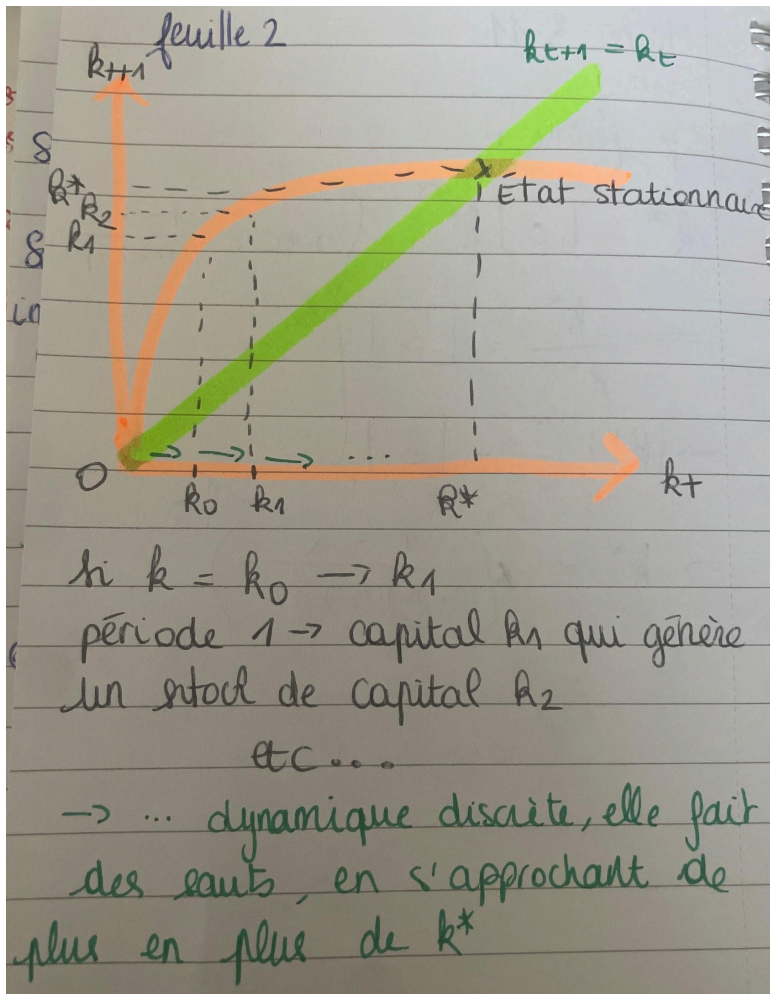 feuille 2
kt+1 = kt
kt+1
k*
Etat stationnaire
k2
k1
...
0
k0
k1
k*
kt
si k = k0 → k1
période 1 → capital k1 qui génère
un stock de capital k2
etc....
→ ... dynamique discrète, elle fait
des sauts, en s'approchant de
plus en plus de k*